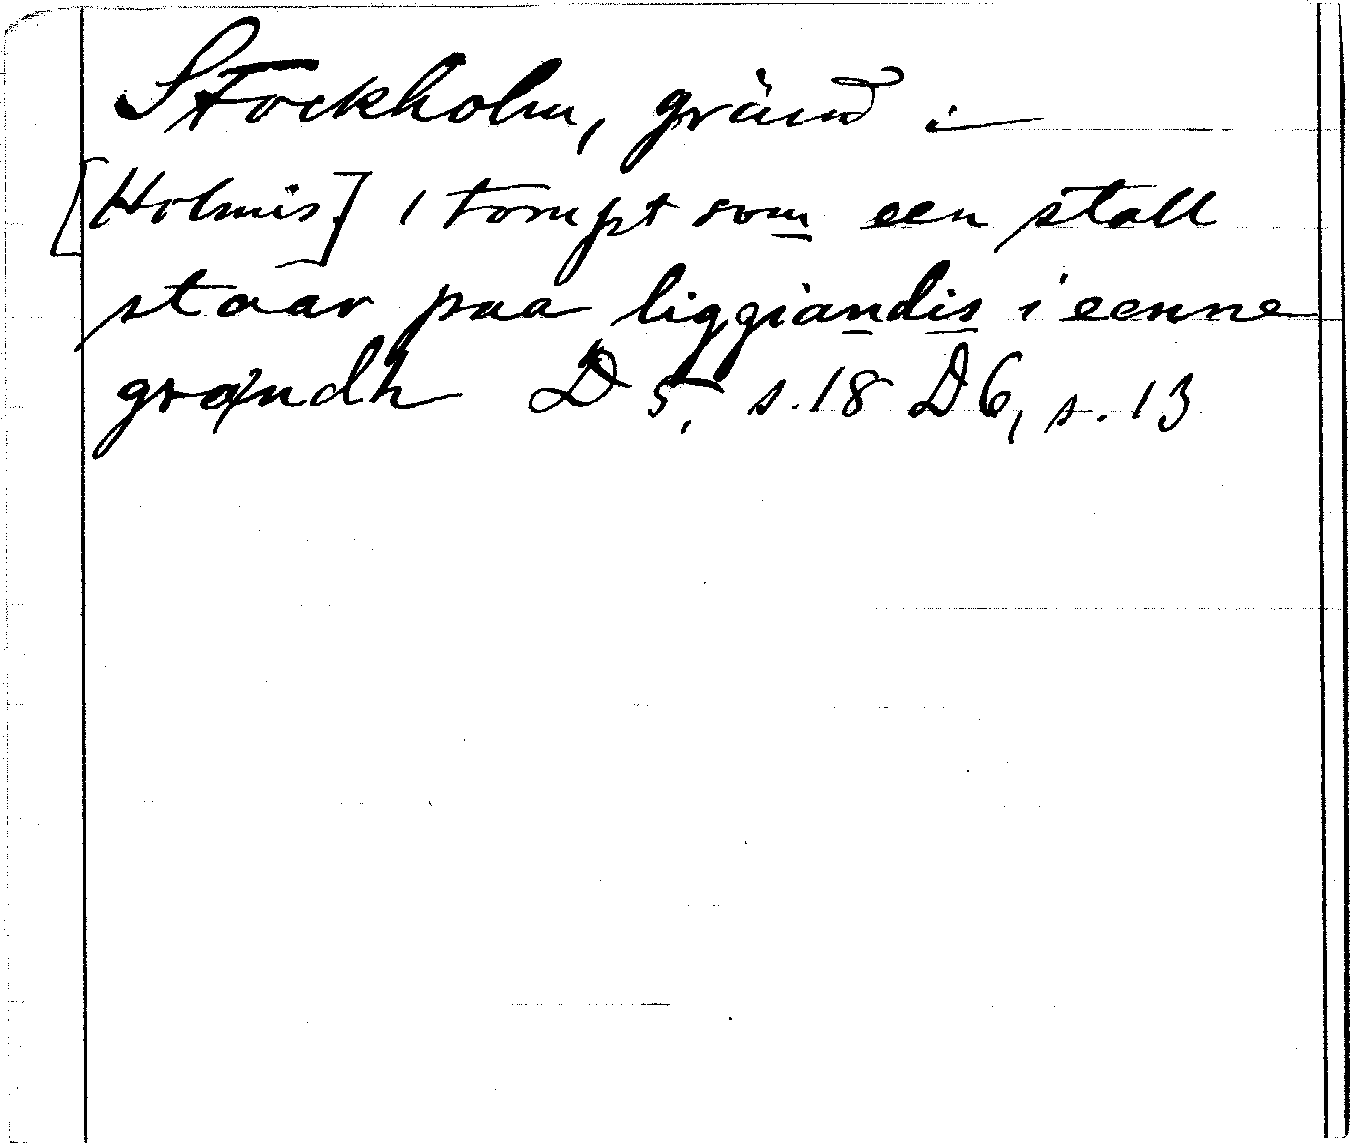 Stockholm, gränd i
[Holmis] 1 tompt som een stall
staar paa liggiandis i eenne
grændh D 5, s. 18 D 6, s. 13